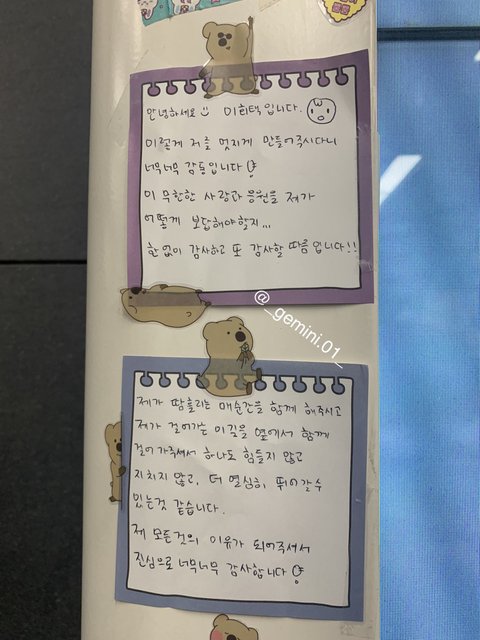 안녕하세요 :) 이희택입니다.
이렇게 저를 멋지게 만들어주시다니
너무너무 감동입니다
이 무한한 사랑과 응원을 제가
어떻게 보답해야할지...
한없이 감사하고 또 감사할 따름입니다!!
@_gemini.01_
제가 땀흘리는 매순간을 함께 해주시고
제가 걸어가는 이길을 옆에서 함께
걸어가주셔서 하나도 힘들지 않고
지치지 않고, 더 열심히, 뛰어갈수
있는것 같습니다.
제 모든것의 이유가 되어주셔서
진심으로 너무너무 감사합니다